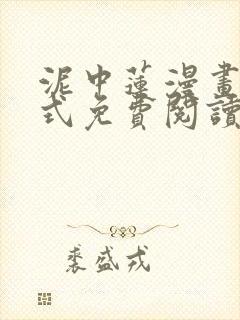 泥中蓮漫畫
式免費閱讀
裘盛戎